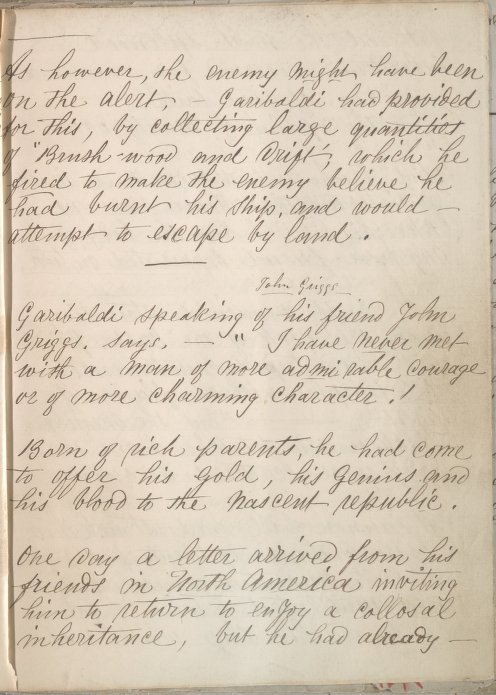 As however, the enemy might have been
on the alert, – Garibaldi had provided
for this, by collecting large quantities
of "Brush-wood and Drift", which he
fired to make the enemy believe he
had burnt his ship, and would –
attempt to escape by land.
John Griggs
Garibaldi speaking of his friend John
Griggs. says. – " I have never met
with a man of more admirable courage
or of more charming character.!
Born of rich parents, he had come
to offer his gold, his genius and
his blood to the nascent republic.
One day a letter arrived from his
friends in North America inviting
him to return to enjoy a collosal
inheritance, but he had already –